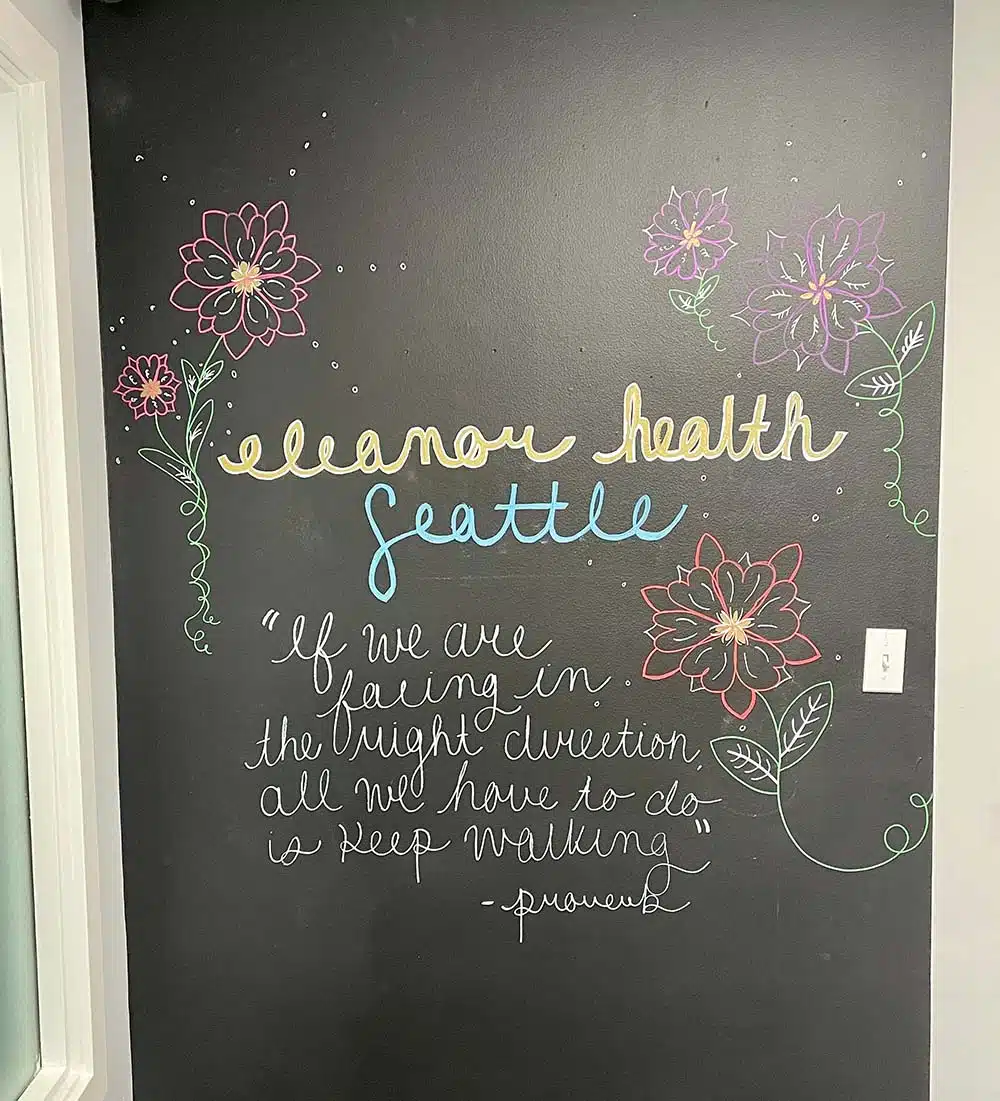 eleanor health
Seattle
"If we are
facing in
the right direction,
all we have to do
is keep walking"
- proverb